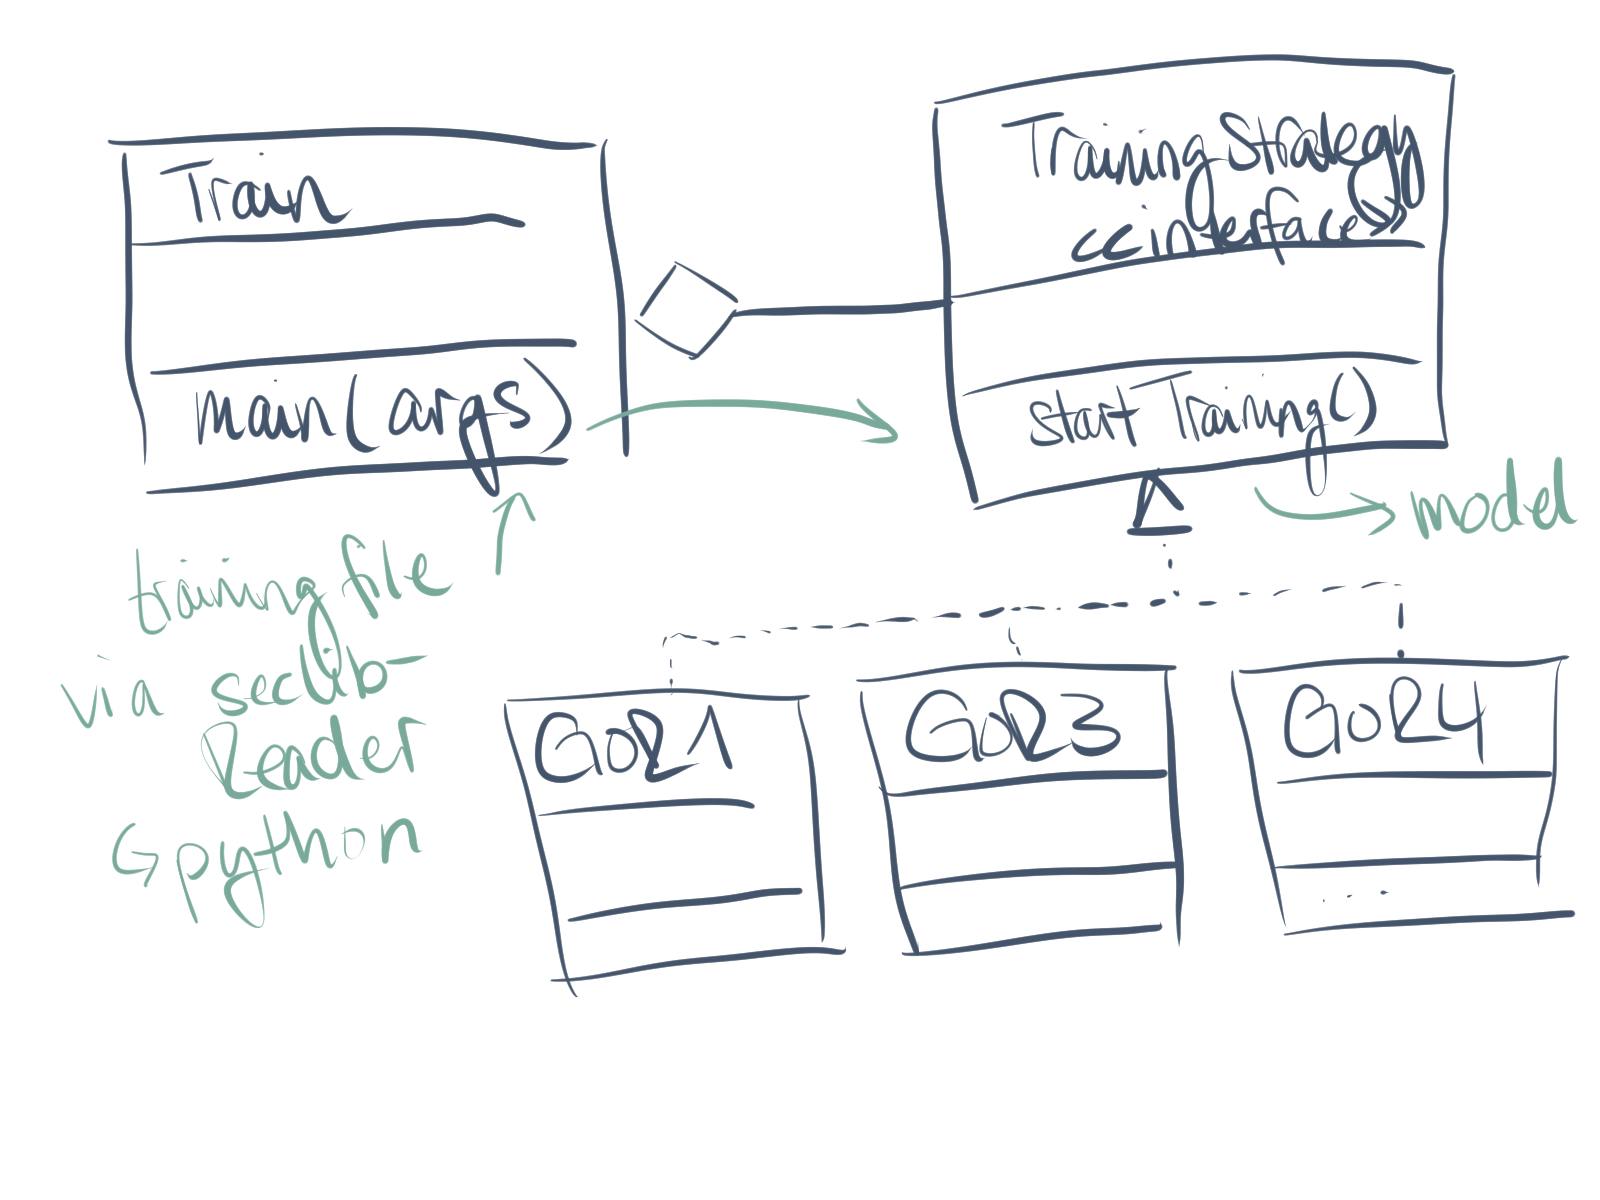 Train
main(args)
TrainingStrategy
<<interface>>
startTraining()
model
training file
via seclib-
Reader
↳ python
GOR1
GOR3
GOR4
...